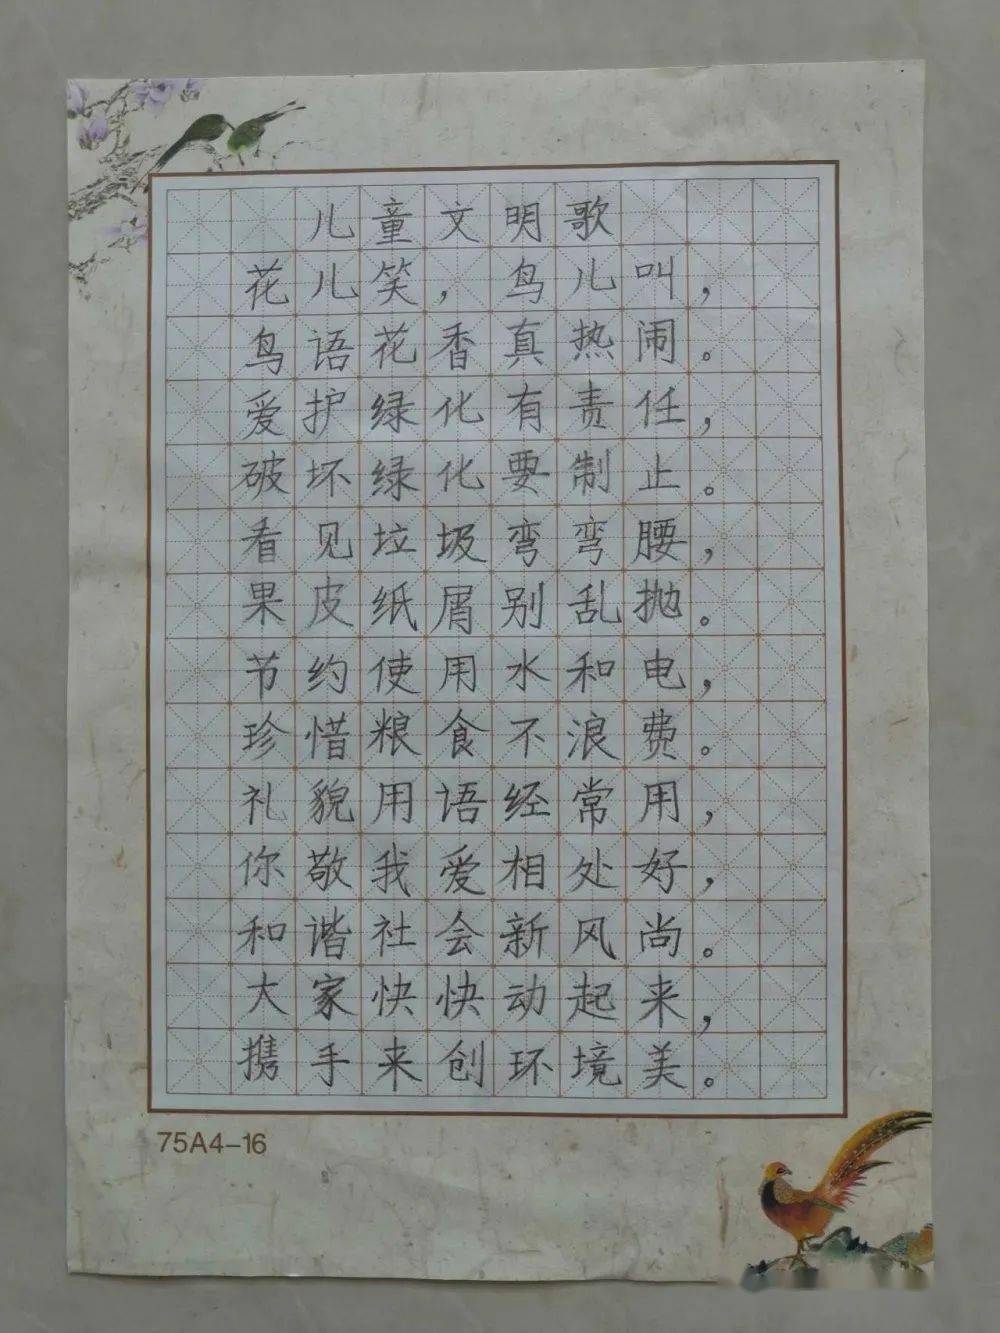 儿童文明歌
花儿笑，鸟儿叫，
鸟语花香真热闹。
爱护绿化有责任，
破坏绿化要制止。
看见垃圾弯弯腰，
果皮纸屑别乱抛。
节约使用水和电，
珍惜粮食不浪费。
礼貌用语经常用，
你敬我爱相处好，
和谐社会新风尚。
大家快快动起来，
携手来创环境美。
75A4-16